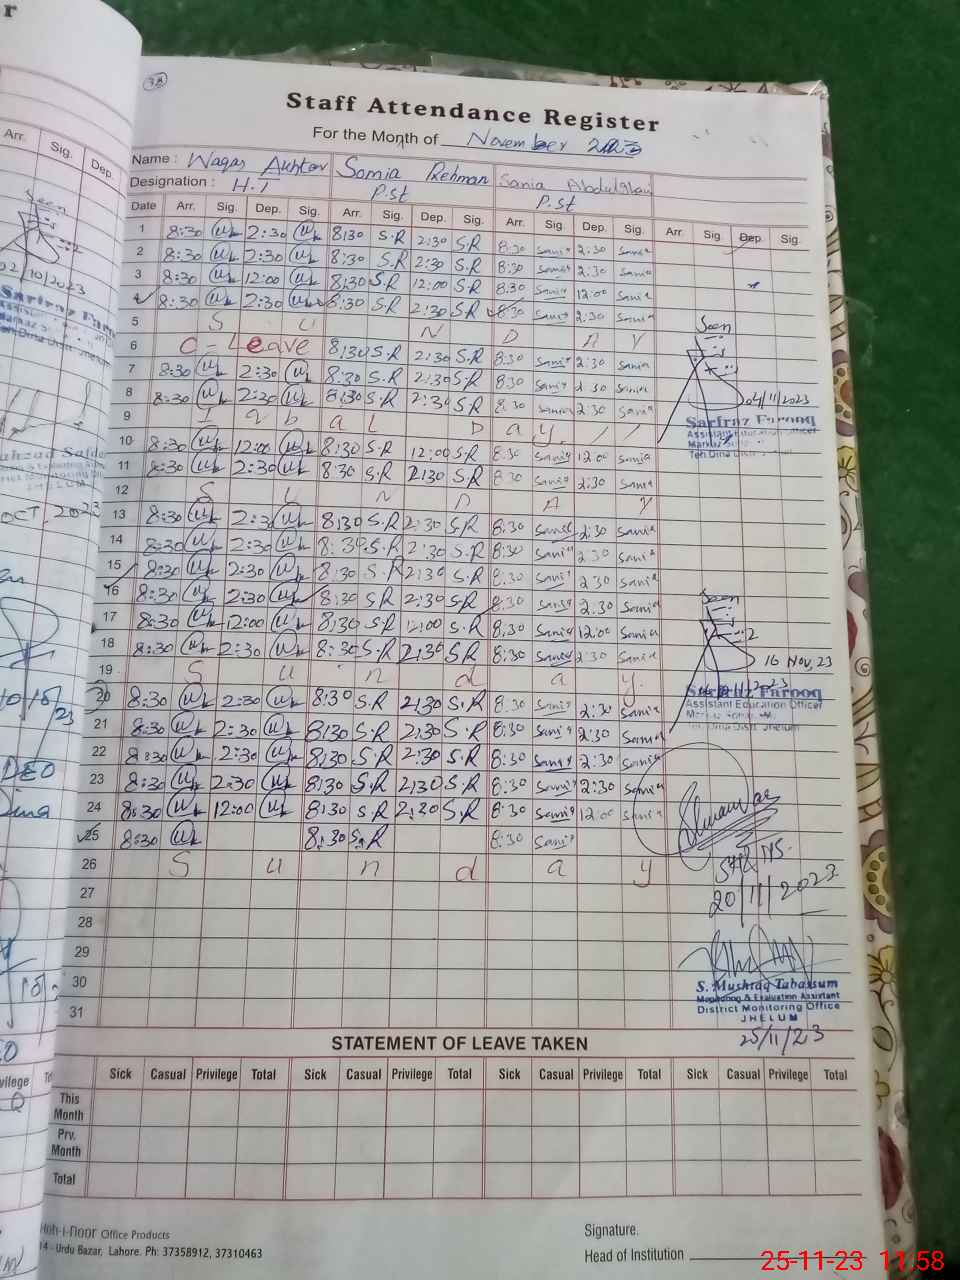 38
Staff Attendance Register
For the Month of November 2023
Name : Waqas Akhtar Somia Rehman Sania
Designation : H.T P.st P.st
Date Arr. Sig. Dep. Sig. Arr. Sig. Dep. Sig. Arr. Sig. Dep. Sig. Arr. Sig Dep. Sig.
1 8:30 2:30 8:30 S.R 2:30 S.R 8:30 Sania 2:30 Sania
2 8:30 2:30 8:30 S.R 2:30 S.R 8:30 Sania 2:30 Sania
3 8:30 12:00 8:30 S.R 12:00 S.R 8:30 Sania 12:00 Sania
4 8:30 2:30 8:30 S.R 2:30 S.R 8:30 Sania 2:30 Sania
5 S U N D A Y
6 C - Leave 8:30 S.R 2:30 S.R 8:30 Sania 2:30 Sania
7 8:30 2:30 8:30 S.R 2:30 S.R 8:30 Sania 2:30 Sania
8 8:30 2:30 8:30 S.R 2:30 S.R 8:30 Sania 2:30 Sania
9 I q b a L D a y
10 8:30 12:00 8:30 S.R 12:00 S.R 8:30 Sania 12:00 Sania
11 8:30 2:30 8:30 S.R 2:30 S.R 8:30 Sania 2:30 Sania
12 S U N D A Y
13 8:30 2:30 8:30 S.R 2:30 S.R 8:30 Sania 2:30 Sania
14 8:30 2:30 8:30 S.R 2:30 S.R 8:30 Sania 2:30 Sania
15 8:30 2:30 8:30 S.R 2:30 S.R 8:30 Sania 2:30 Sania
16 8:30 2:30 8:30 S.R 2:30 S.R 8:30 Sania 2:30 Sania
17 8:30 12:00 8:30 S.R 12:00 S.R 8:30 Sania 12:00 Sania
18 8:30 2:30 8:30 S.R 2:30 S.R 8:30 Sania 2:30 Sania
19 S u n d a y
20 8:30 2:30 8:30 S.R 2:30 S.R 8:30 Sania 2:30 Sania
21 8:30 2:30 8:30 S.R 2:30 S.R 8:30 Sania 2:30 Sania
22 8:30 2:30 8:30 S.R 2:30 S.R 8:30 Sania 2:30 Sania
23 8:30 2:30 8:30 S.R 2:30 S.R 8:30 Sania 2:30 Sania
24 8:30 12:00 8:30 S.R 2:30 S.R 8:30 Sania 12:00 Sania
25 8:30 8:30 S.R 8:30 Sania
26 S u n d a y
27
28
29
30
31
Seen
04/11/2023
Sarfraz Farooq
Assistant Education Officer
Seen
16 Nov, 23
Sarfraz Farooq
Assistant Education Officer
Teh Dina Distt. Jhelum
20/11/2023
S. Mushtaq Tabassum
Monitoring & Evaluation Assistant
District Monitoring Office
JHELUM
25/11/23
STATEMENT OF LEAVE TAKEN
Sick Casual Privilege Total Sick Casual Privilege Total Sick Casual Privilege Total Sick Casual Privilege Total
This Month
Prv. Month
Total
Office Products
Urdu Bazar, Lahore. Ph: 37358912, 37310463
Signature.
Head of Institution
Arr. Sig. Dep.
Seen
02/10/2023
Sarfraz Farooq
OCT, 2023
DEO
Dina
25-11-23 11:58